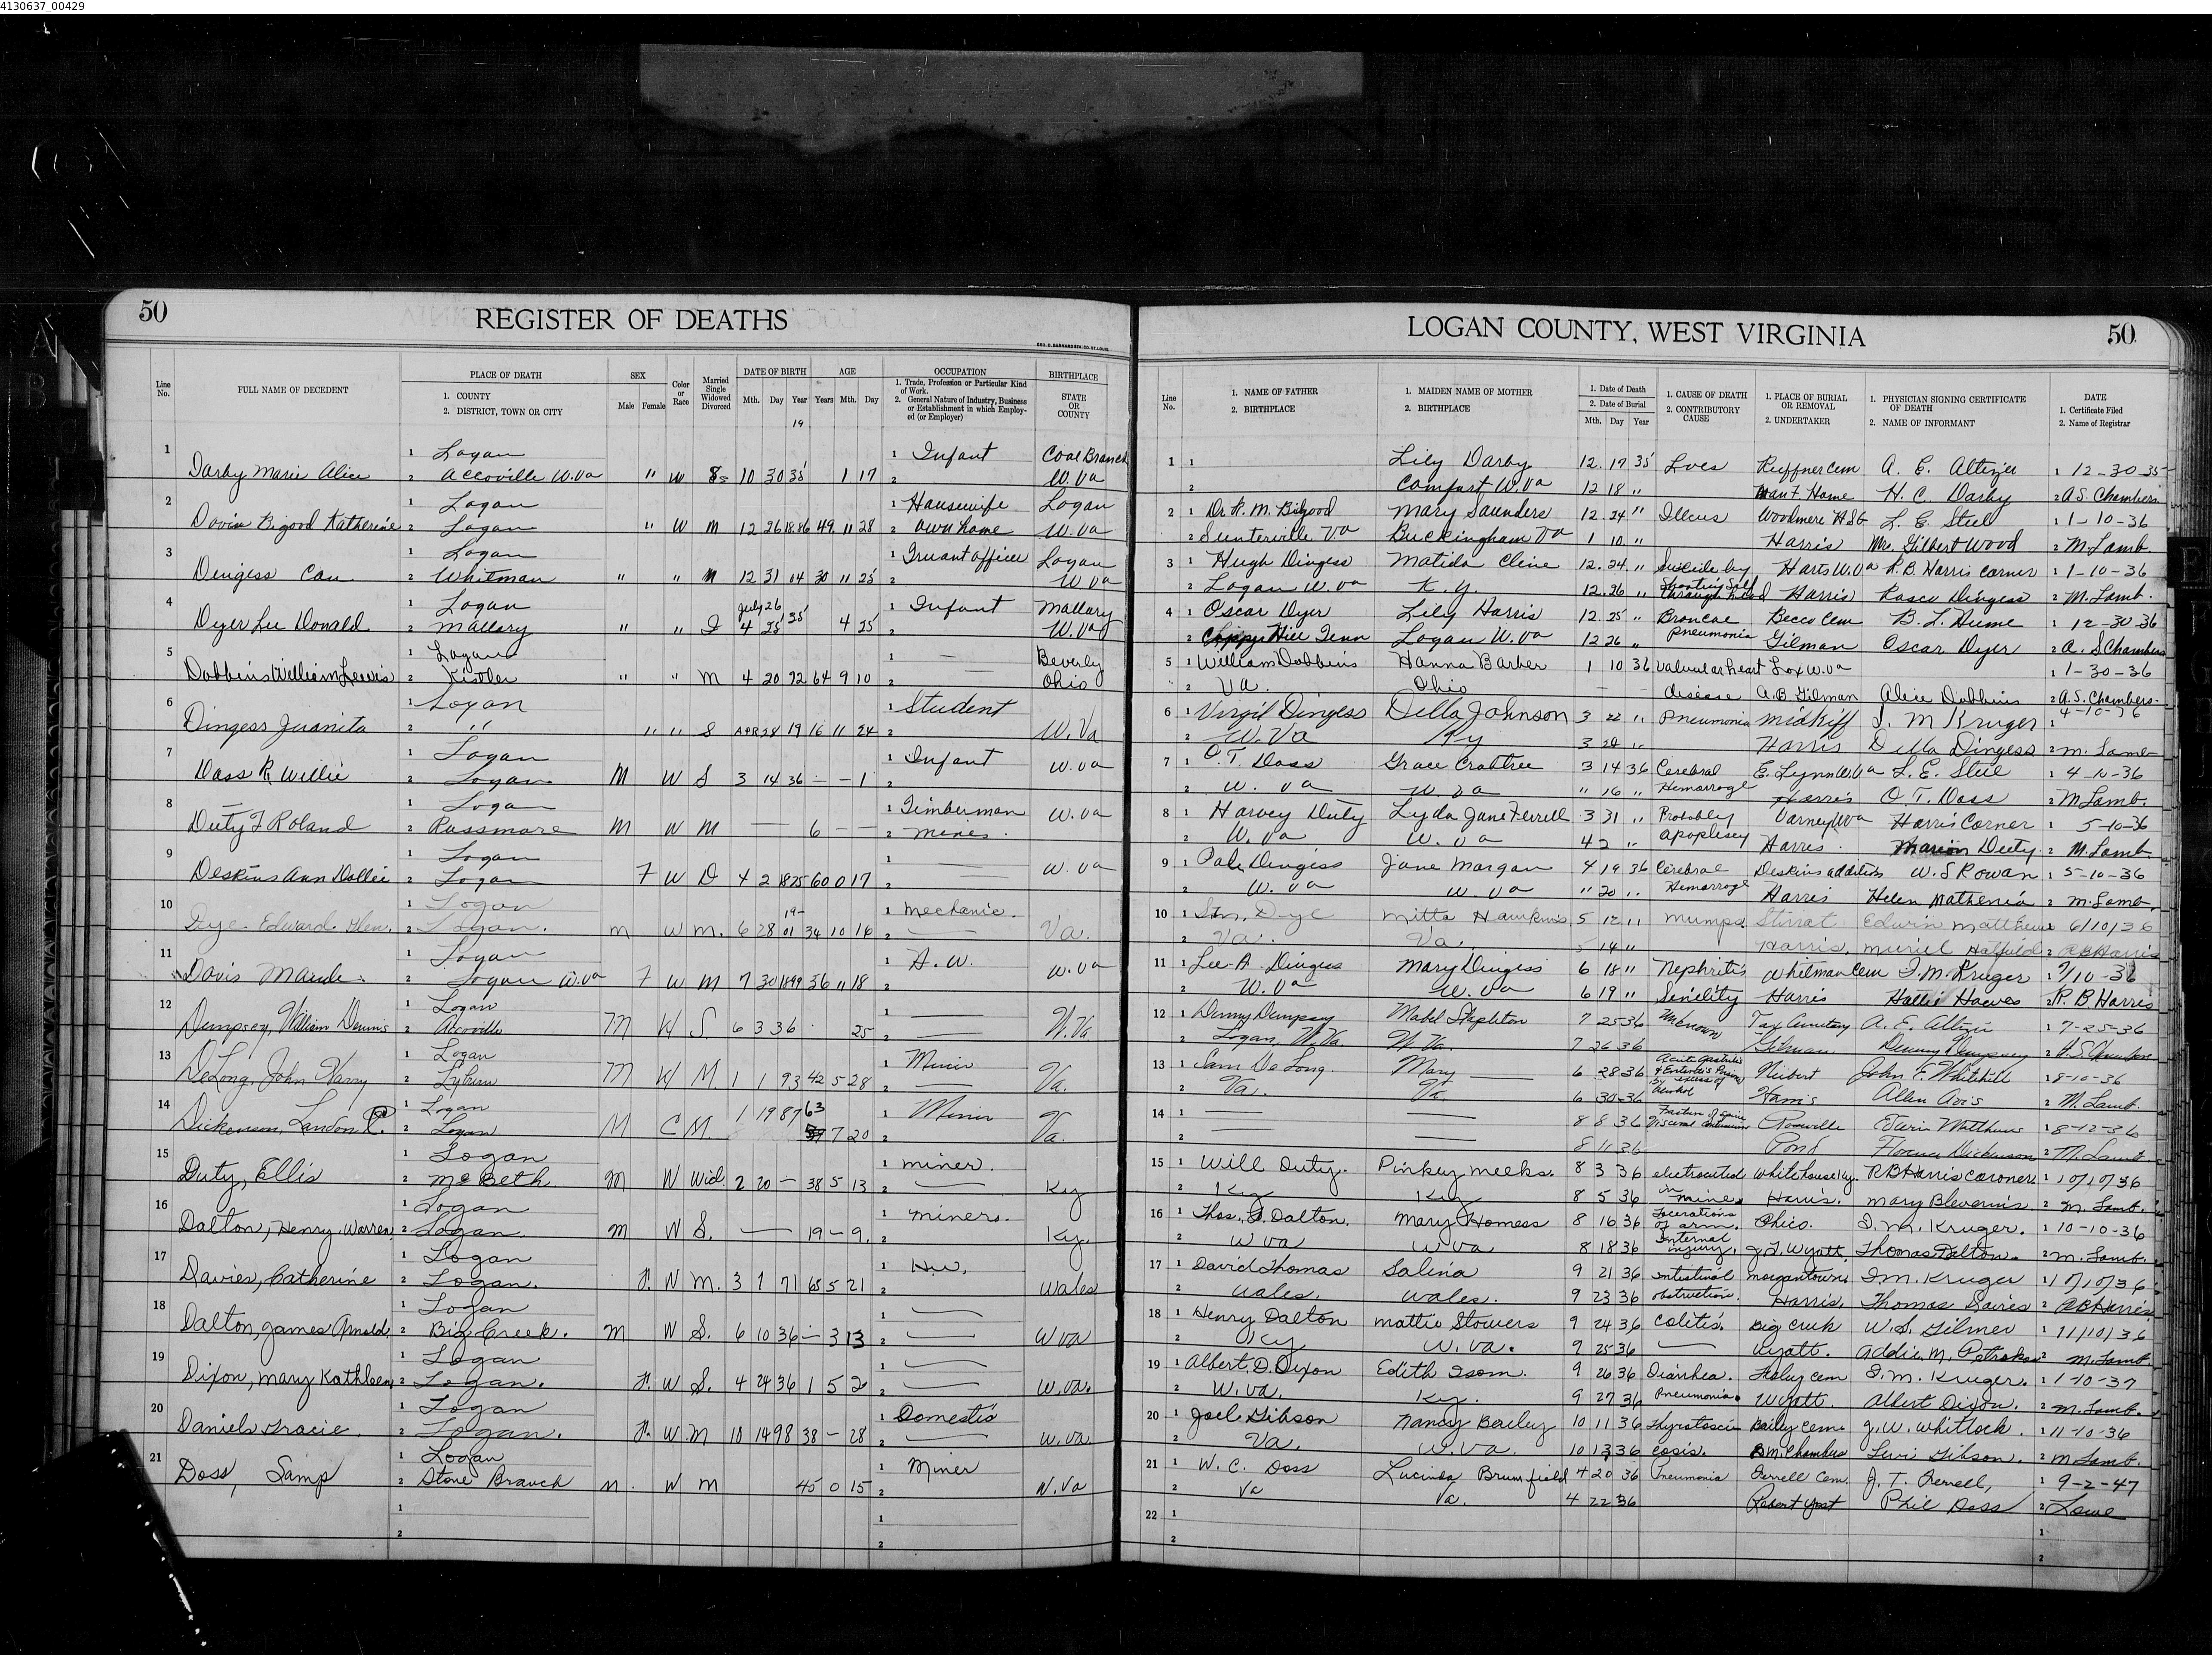 4130637_00429
50
REGISTER OF DEATHS
Line No.
FULL NAME OF DECEDENT
PLACE OF DEATH
1. COUNTY
2. DISTRICT, TOWN OR CITY
SEX
Male Female
Color or Race
Married Single Widowed Divorced
DATE OF BIRTH
Mth. Day Year
19
AGE
Years Mth. Day
OCCUPATION
1. Trade, Profession or Particular Kind of Work.
2. General Nature of Industry, Business or Establishment in which Employed (or Employer)
BIRTHPLACE
STATE OR COUNTY
1 Darby Marie Alice 1 Logan 1 Infant Coal Branch
2 Accoville W.Va " W S 10 30 35 1 17 2 W.Va
2 1 Logan 1 Housewife Logan
Katherine 2 Logan " W M 12 26 1886 49 11 28 2 own home W.Va
3 Dingess 1 Logan 1 Truant officer Logan
2 Whitman " " M 12 31 04 30 11 23 2 W.Va
4 Dyer Lee Donald 1 Logan July 26 1 Infant Mallary
2 Mallary " " S 4 25 35 4 25 2 W.Va
5 Dobbins William Lewis 1 Logan 1 — Beverly
2 Kistler " " M 4 20 72 64 9 10 2 Ohio
6 Dingess Juanita 1 Logan 1 Student
2 " " " S APR 28 19 16 11 24 2 W.Va
7 Dass R Willie 1 Logan 1 Infant W.va
2 Logan M W S 3 14 36 — — 1 2
8 Duty F Roland 1 Logan 1 Timberman W.va
2 Rossmore M W M — 6 — — 2 mines.
9 Deskins Ann Dollie 1 Logan 1 — W.va
2 Logan F W D 4 2 1875 60 0 17 2
10 Dye Edward Glen. 1 Logan 19- 1 Mechanic.
2 Logan. M W M. 6 28 01 34 10 14 2 — Va.
11 Davis Maude 1 Logan 1 H.W. W.va
2 Logan W.va F W M 7 30 1899 36 11 18 2
12 Dempsey, William Dennis 1 Logan 1 —
2 Accoville M W S. 6 3 36 25 2 — W.Va.
13 DeLong, John Harry 1 Logan 1 Miner
2 Lyburn M W M. 1 1 93 42 5 28 2 Va.
14 Dickenson, Landon P. 1 Logan 1 19 87 63 1 Miner
2 Logan M C M. 7 20 2 Va.
15 Duty, Ellis 1 Logan 1 miner.
2 McBeth M W Wid. 2 20 — 38 5 13 2 — Ky
16 Dalton, Henry Warren 1 Logan 1 miners.
2 Logan. M W S. — 19 — 9. 2 — Ky.
17 Davies, Catherine 1 Logan 1 H.W.
2 Logan. F. W M. 3 1 71 65 5 21 2 Wales
18 Dalton, James Arnold 1 Logan 1 —
2 Big Creek. M W S. 6 10 36 — 3 13 2 — W Va
19 Dixon, Mary Kathleen 1 Logan 1 —
2 Logan. F. W S. 4 24 36 1 5 2 2 — W.Va.
20 Daniels Gracie. 1 Logan 1 Domestic
2 Logan. F. W M 10 14 98 38 — 28 2 — W.Va.
21 Doss, Samp 1 Logan 1 Miner
2 Stone Branch M. W M 45 0 15 2 W.Va
1 1
2 2
LOGAN COUNTY, WEST VIRGINIA
50
Line No.
1. NAME OF FATHER
2. BIRTHPLACE
1. MAIDEN NAME OF MOTHER
2. BIRTHPLACE
1. Date of Death
2. Date of Burial
Mth. Day Year
1. CAUSE OF DEATH
2. CONTRIBUTORY CAUSE
1. PLACE OF BURIAL OR REMOVAL
2. UNDERTAKER
1. PHYSICIAN SIGNING CERTIFICATE OF DEATH
2. NAME OF INFORMANT
DATE
1. Certificate Filed
2. Name of Registrar
1 1 Lily Darby 12 17 35 Ruffner Cem A. E. Altizer 1 12-30-35
2 Comfort W.va 12 18 " Home H. C. Darby 2 A.S. Chambers
2 1 Dr. R. M. Bigood Mary Saunders 12 24 " Illeus Woodmere L. E. Steel 1 1-10-36
2 Va Buckingham Va 1 10 " Harris Mrs Gilbert Wood 2 M. Lamb
3 1 Hugh Dingess Matilda Cline 12 24 " Suicide by Harts W.Va R.B. Harris Corner 1 1-10-36
2 Logan W.va K.y. 12 26 " Shooting Self through head Harris Rosco Dingess 2 M. Lamb.
4 1 Oscar Dyer Lily Harris 12 25 " Broncae Becco Cem B. L. Hume 1 12-30-36
2 Hill Tenn Logan W.va 12 26 " pneumonia Gilman Oscar Dyer 2 A. S Chambers
5 1 William Dobbins Hanna Barber 1 10 36 Valvular heart W.va 1 1-30-36
2 VA. Ohio — — disease A.B. Gilman Alice Dobbins 2 A.S. Chambers
6 1 Virgil Dingess Della Johnson 3 22 " Pneumonia Midkiff I. M Kruger 1 4-10-36
2 W.Va Ky 3 24 " Harris Della Dingess 2 M. Lamb
7 1 O. T. Dass Grace Crabtree 3 14 36 Cerebral E. Lynn W.Va L. E. Steel 1 4-10-36
2 W. va W. va " 16 " Hemarroge Harris O T. Doss 2 M Lamb.
8 1 Harvey Duty Lyda Jane Ferrell 3 31 " Probably Varney W.va Harris Corner 1 5-10-36
2 W. Va W. va 4 2 " apoplexey Harris. Marion Duty 2 M. Lamb.
9 1 Dingess Jane Morgan 4 19 36 Cerebral Deskins addition W. S Rowan 1 5-10-36
2 W. va W. va " 20 " Hemarroge Harris Helen Mathenia 2 M. Lamb.
10 1 Dye Mitta Hawkins 5 12 " Mumps Stirrat Edwin Matthews 6/10/36
2 Va. Va. 5 14 " Harris. Muriel Hatfield 2 R B Harris
11 1 Lee A Dingess Mary Dingess 6 18 " Nephritis Whitman Cem I. M. Kruger 1 7/10-36
2 W. Va W. Va 6 19 " Senility Harris Hattie 2 R. B Harris
12 1 Denny Dempsey Mabel Stapleton 7 25 36 Unknown Cemetery A. E. Altizer 1 7-25-36
2 Logan, W. Va. W. Va. 7 26 36 Gilman Denny Dempsey 2 A. S Chambers
13 1 Sam De Long Mary — 6 28 36 Acute Gastritis & Enteritis Poison by excess of alcohol John F. Whitehill 8-10-36
2 Va. Va. 6 30 36 Harris Allen 2 M. Lamb.
14 1 — — 8 8 36 Fracture of spine Visceral Matthews 1 8-12-36
2 — — 8 11 36 Pond Florence Dickenson 2 M. Lamb
15 1 Will Duty. Pinkey Meeks. 8 3 36 electrocuted Whitehouse Ky. R B Harris Coroner 1 10/10/36
2 Ky Ky 8 5 36 in mine. Harris. Mary Blevins 2 M. Lamb.
16 1 Thos. Dalton. Mary Homess 8 16 36 Lacerations of arm. Chico. I. M. Kruger. 1 10-10-36
2 W Va W Va 8 18 36 Internal injury. J. T. Wyatt. Thomas Dalton. 2 M. Lamb.
17 1 David Thomas Salina 9 21 36 Intestinal Morgantown. I. M. Kruger 1 10/10/36
2 Wales. Wales. 9 23 36 obstruction. Harris. Thomas Davies 2 R B Harris
18 1 Henry Dalton Mattie Stowers 9 24 36 Colitis. Big Creek W. S. Gilmer 1 11/10/36
2 Ky W. Va. 9 25 36 — Wyatt. Addie M. 2 M. Lamb
19 1 Albert D. Dixon Edith Isom. 9 26 36 Diarrhea. cem I. M. Kruger. 1 1-10-37
2 W. Va. Ky. 9 27 36 Pneumonia. Wyatt. Albert Dixon. 2 M. Lamb.
20 1 Joel Gibson Nancy Bailey 10 11 36 Bailey Cem. J. W. Whitlock. 1 11-10-36
2 Va. W. Va. 10 13 36 cosis. Chambers Levi Gibson. 2 M Lamb.
21 1 W. C. Doss Lucinda Brumfield 4 20 36 Pneumonia Ferrell Cem. J. T. Ferrell, 1 9-2-47
2 Va Va. 4 22 36 Robert Yost Phil Doss 2 Lowe
22 1 1
2 2